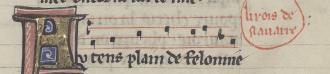 li rois de
nauarre
Au tens plain de felonnie